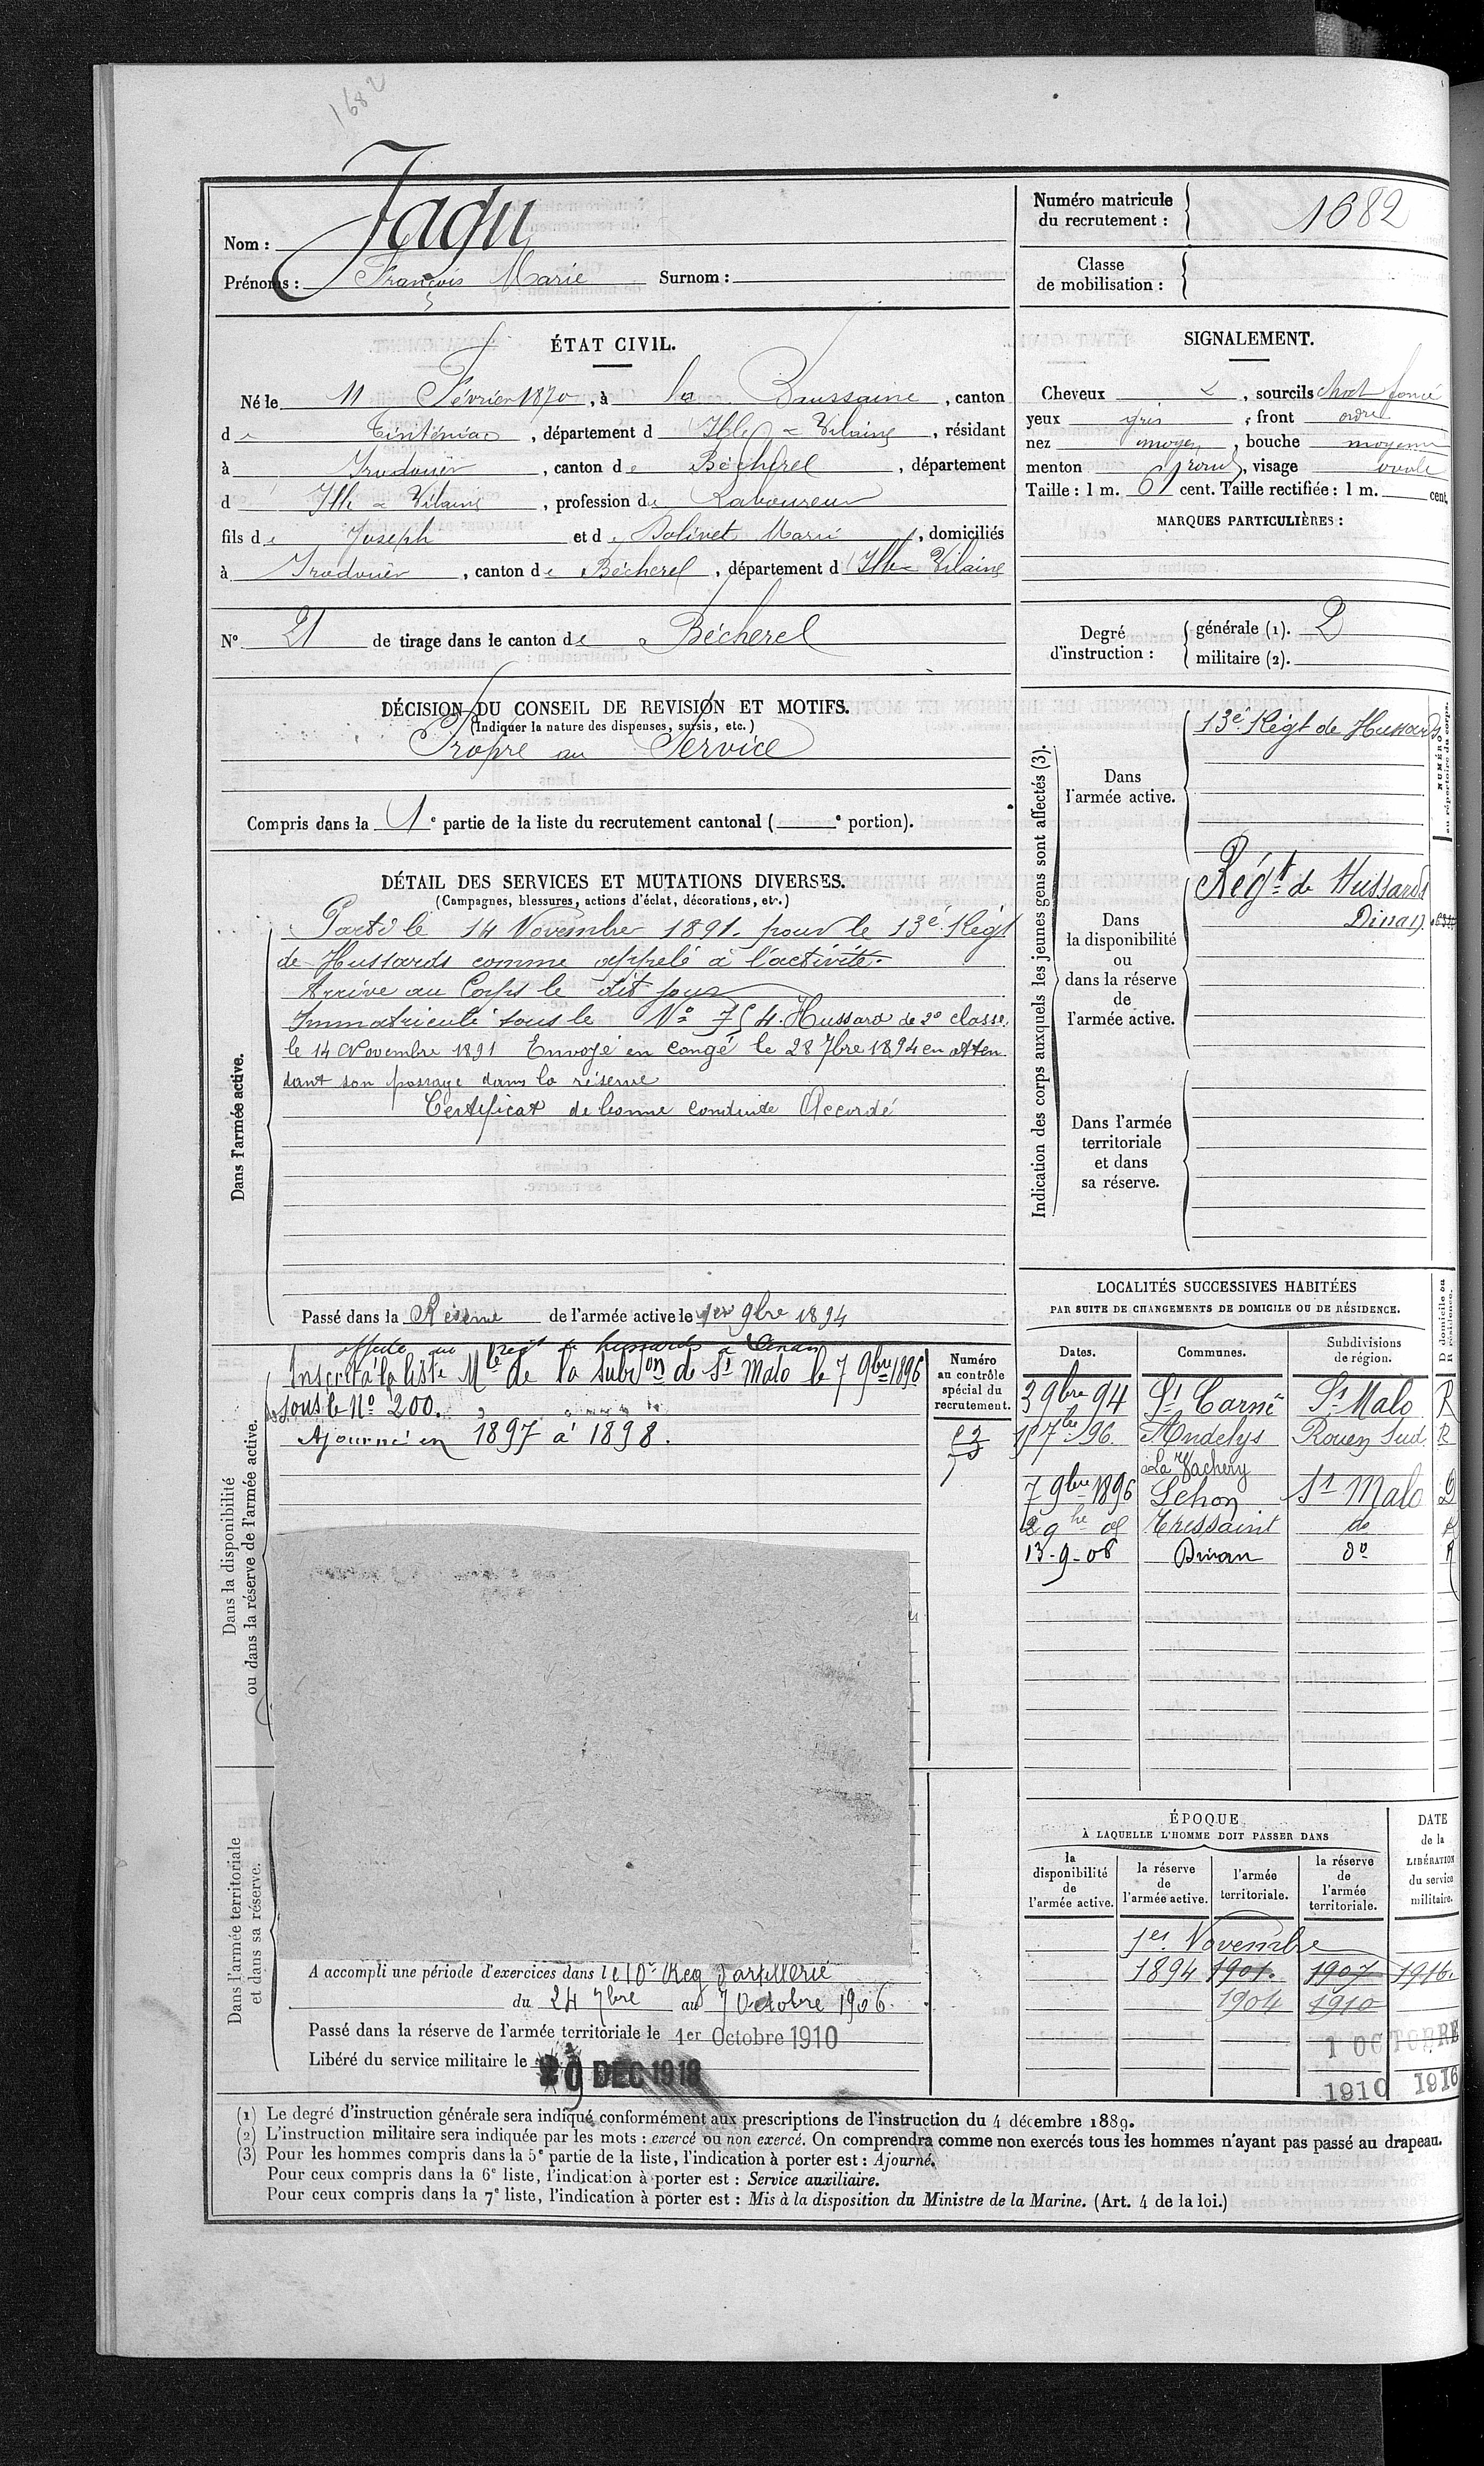 1682
Nom : Jagu
Prénoms : François Marie Surnom :
Numéro matricule du recrutement : 1682
Classe de mobilisation :
ÉTAT CIVIL.
Né le 11 Février 1870, à la Baussaine, canton
de Tinténiac, département d'Ille & Vilaine, résidant
à Irodouër, canton de Bécherel, département
d Ille & Vilaine, profession de Laboureur
fils de Joseph et de Bolivet Marie, domiciliés
à Irodouër, canton de Bécherel, département d Ille & Vilaine
N° 21 de tirage dans le canton de Bécherel
SIGNALEMENT.
Cheveux &, sourcils chat foncé
yeux gris, front ordre
nez moyen, bouche moyenne
menton rond, visage ovale
Taille : 1 m. 61 cent. Taille rectifiée : 1 m. cent.
MARQUES PARTICULIÈRES :
Degré d'instruction : générale (1). 2
militaire (2).
DÉCISION DU CONSEIL DE REVISION ET MOTIFS.
(Indiquer la nature des dispenses, sursis, etc.)
Propre au Service
Compris dans la 1e partie de la liste du recrutement cantonal ( e portion).
DÉTAIL DES SERVICES ET MUTATIONS DIVERSES.
(Campagnes, blessures, actions d'éclat, décorations, etc.)
Dans l'armée active.
Parti le 14 Novembre 1891. pour le 13e Régt
de Hussards comme appelé à l'activité.
Arrivé au Corps le dit jour
Immatriculé sous le No 754. Hussard de 2e classe,
le 14 Novembre 1891 Envoyé en congé le 28 7bre 1894 en atten
dant son passage dans la réserve
Certificat de bonne conduite Accordé
Passé dans la Réserve de l'armée active le 1er 9bre 1894
Indication des corps auxquels les jeunes gens sont affectés (3).
NUMÉRO au répertoire du corps.
Dans l'armée active.
13e Régt de Hussards
Dans la disponibilité ou dans la réserve de l'armée active.
Régt de Hussards
Dinan
Dans l'armée territoriale et dans sa réserve.
Dans la disponibilité ou dans la réserve de l'armée active.
affecté au régt de hussards à Dinan
Inscrit à la liste Mle de la Subon de St Malo le 7 9bre 1896
sous le No 200.
Ajourné en 1897 à 1898.
Numéro au contrôle spécial du recrutement.
LOCALITÉS SUCCESSIVES HABITÉES
PAR SUITE DE CHANGEMENTS DE DOMICILE OU DE RÉSIDENCE.
D domicile ou R résidence.
Dates. Communes. Subdivisions de région.
3 9bre 94 St Carné St Malo R
96 Andelys Rouen Sud R
à La Vachery
7 9bre 1896 Lehon St Malo D
Tressaint do R
13-9-08 Dinan do R
ÉPOQUE
À LAQUELLE L'HOMME DOIT PASSER DANS
la disponibilité de l'armée active.
la réserve de l'armée active.
l'armée territoriale.
la réserve de l'armée territoriale.
DATE de la LIBÉRATION du service militaire.
1er Novembre
1894 1901. 1907 1916.
1904 1910
1 OCTOBRE
1910 1916
Dans l'armée territoriale et dans sa réserve.
A accompli une période d'exercices dans le 10e Reg d'artillerie
du 24 7bre au 7 Octobre 1906.
Passé dans la réserve de l'armée territoriale le 1er Octobre 1910
Libéré du service militaire le DEC 1918
(1) Le degré d'instruction générale sera indiqué conformément aux prescriptions de l'instruction du 4 décembre 1889.
(2) L'instruction militaire sera indiquée par les mots : exercé ou non exercé. On comprendra comme non exercés tous les hommes n'ayant pas passé au drapeau.
(3) Pour les hommes compris dans la 5e partie de la liste, l'indication à porter est : Ajourné.
Pour ceux compris dans la 6e liste, l'indication à porter est : Service auxiliaire.
Pour ceux compris dans la 7e liste, l'indication à porter est : Mis à la disposition du Ministre de la Marine. (Art. 4 de la loi.)